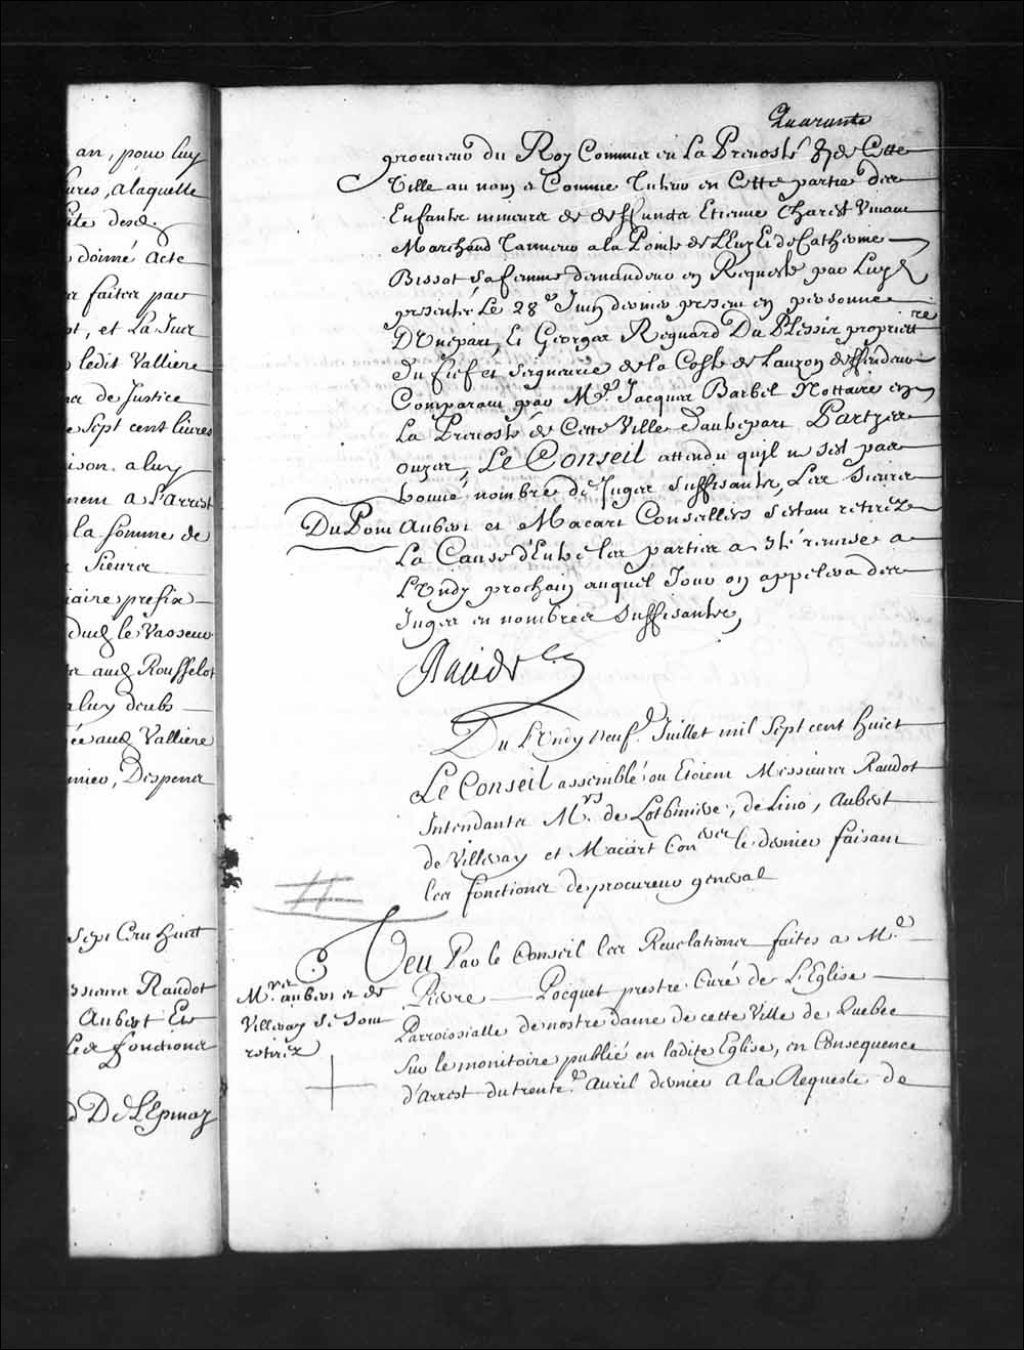 an, pour luy
ures, a laquelle
ite desd.
donné acte
faites par
et La Juer
ledit Valliere
de Justice
Sept cent livres
ison a luy
nent a L'arrest
la somme de
Sieurs
iaire prefix
dud le Vasseur
aud Rousselot
a luy deubs
ée aud Valliere
mier, Despens
Sept Cent huict
ssieurs Raudot
Aubert Et
Les fonctions
De L'Epinay
Quarante
procureur du Roy Commis en La Prevosté de Cette
Ville au nom et Comme Tuteur en Cette partie des
Enfants mineurs de deffunts Etienne Charest Vivant
Marchand Tanneur a la Pointe de Levy Et de Catherine
Bissot Sa femme demandeur en Requeste par Luy
presentée Le 28e Juin dernier present en personne
D'Une part, Et Georges Regnard Du Plessis propriettre
du fief et Seigneurie de la Coste de Lauzon deffendeur
Comparant par Me Jacques Barbel Nottaire en
La Prevosté de Cette Ville d'autre part Parties
ouyes, Le Conseil attendu qu'il n'est pas
trouvé nombre de Juges Suffisants, Les Sieurs
Du Pont Aubert et Macart Conseillers s'estant retirez
La Cause d'Entre les parties a Eté remise a
L'Undy prochain auquel Jour on appelera des
Juges en nombres Suffisants,
Raudot
Du L'Undy neufe Juillet mil Sept cent huict
Le Conseil assemblé ou Etoient Messieurs Raudot
Intendants Mrs de Lotbiniere, de Lino, Aubert
de Villeray et Macart Coners le dernier faisant
les fonctions de procureur general
Mrs aubert et de
Villeray Se Sont
retirez
Veu Par le Conseil les Revelations faites a Me
Pierre Pocquet prestre Curé de L'Eglise
Parroissialle de nostre dame de cette Ville de Quebec
Sur le monitoire publié en ladite Eglise, en Consequence
d'Arrest du trente avril dernier a la Requeste de